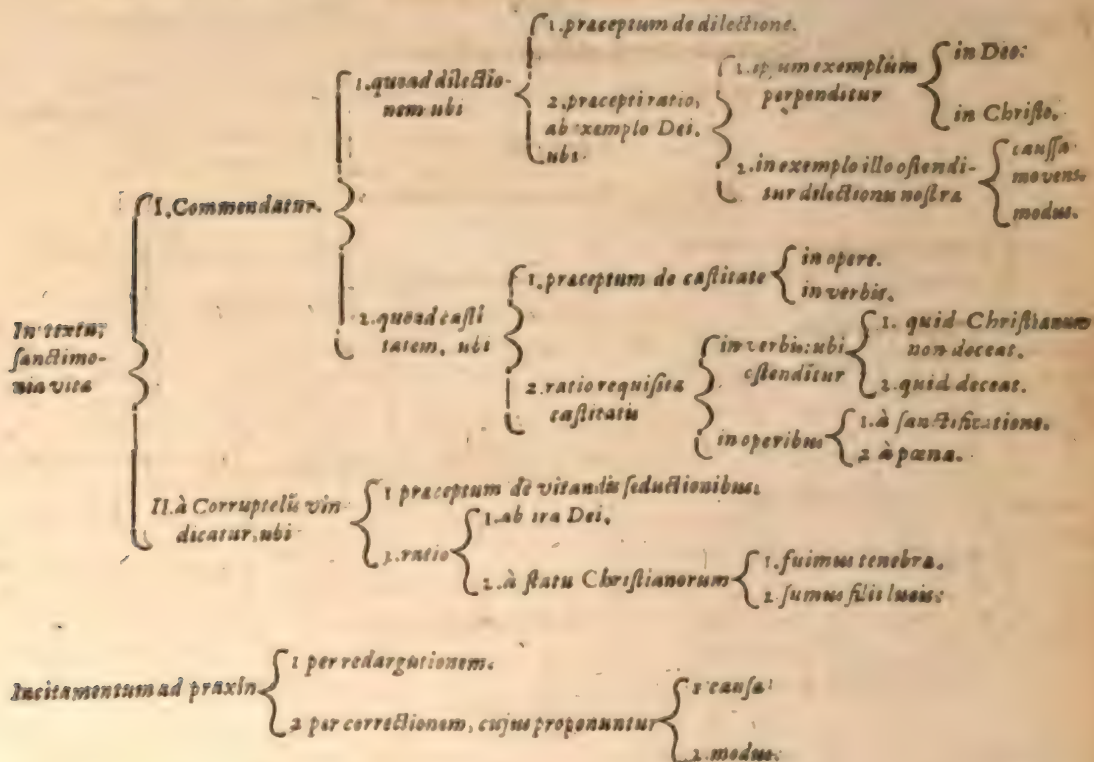 1. præceptum de dilectione.
1. quoad dilectio-
nem ubi
2. præcepti ratio,
ab exemplo Dei.
ubi
1. ipsum exemplum
perpenditur
in Deo:
in Christo.
2. in exemplo illo ostendi-
tur dilectionis nostra
caussa
movens.
modus.
I. Commendatur.
2. quoad casti
tatem, ubi
1. præceptum de castitate
in opere.
in verbis.
2. ratio requisita
castitatis
in verbis: ubi
ostenditur
1. quid Christianum
non deceat.
2. quid deceat.
in operibus
1. à sanctificatione.
2 à pœna.
In textu,
sanctimo-
nia vita
II. à Corruptelis vin
dicatur, ubi
1 præceptum de vitandis seductionibus.
2. ratio
1. ab ira Dei.
2. à statu Christianorum
1. fuimus tenebra.
2 sumus filii lucis:
Incitamentum ad praxin
1 per redargutionem.
2 per correctionem, cujus proponuntur
1 causa:
2. modus: